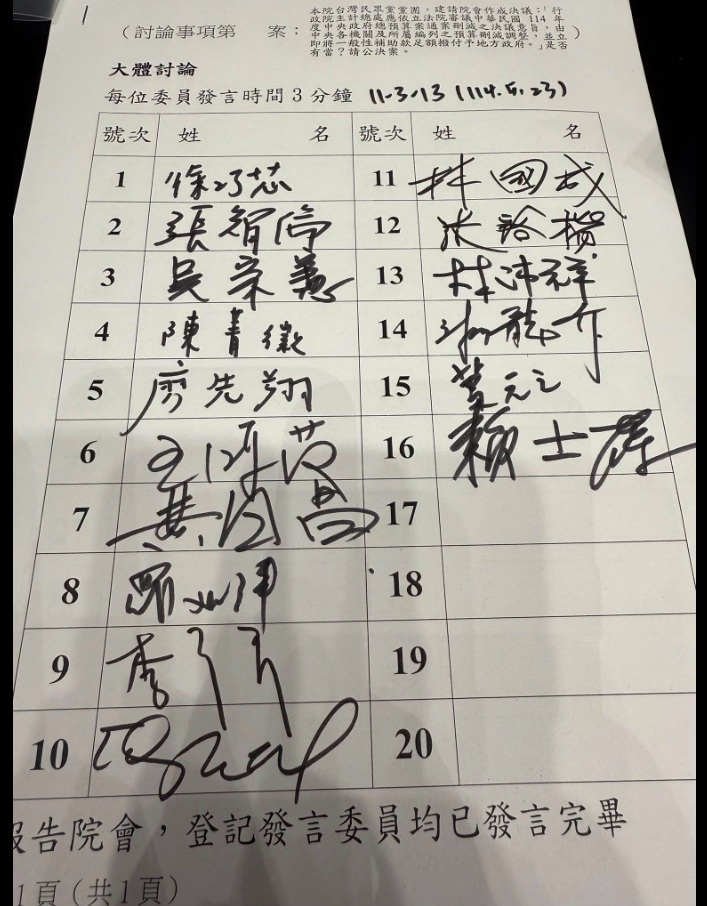 本院台灣民眾黨黨團,建請院會作成決議:「行
政院主計總處應依立法院審議中華民國 114 年
度中央政府總預算案通過之刪減決議意旨,由
中央各機關及所屬編列之預算予刪減調整,並立
即將一般性補助款足額撥付予地方政府。」是否
有當?請公決案。
(討論事項第 案: )
大體討論
每位委員發言時間3分鐘 11-3-13 (114.5.23)
號次 姓 名 號次 姓 名
1 徐巧芯 11 林國成
2 張智倫 12
3 吳宗憲 13 林沛祥
4 陳菁徽 14
5 廖先翔 15 葉元之
6 王鴻薇 16 賴士葆
7 黃國昌 17
8 羅 18
9 李 19
10 20
報告院會,登記發言委員均已發言完畢
1頁(共1頁)